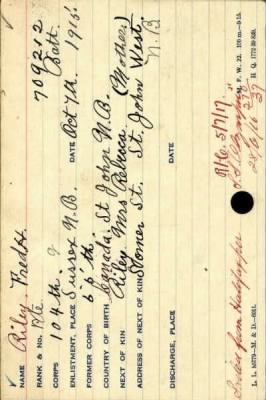 709212
NAME Riley, Fredk
RANK & NO. Pte
CORPS 104th. Batt.
ENLISTMENT, PLACE Sussex N.B. DATE Oct 7th. 1915.
FORMER CORPS 6 th.
COUNTRY OF BIRTH Canada, St John N.B.
NEXT OF KIN Riley Mrs Rebecca (Mother)
ADDRESS OF NEXT OF KIN St. St. John West N.B
DISCHARGE, PLACE DATE
5/7/17.
S.S. Olympic
from Halifax
28/6/16
L. L.
H. Q.